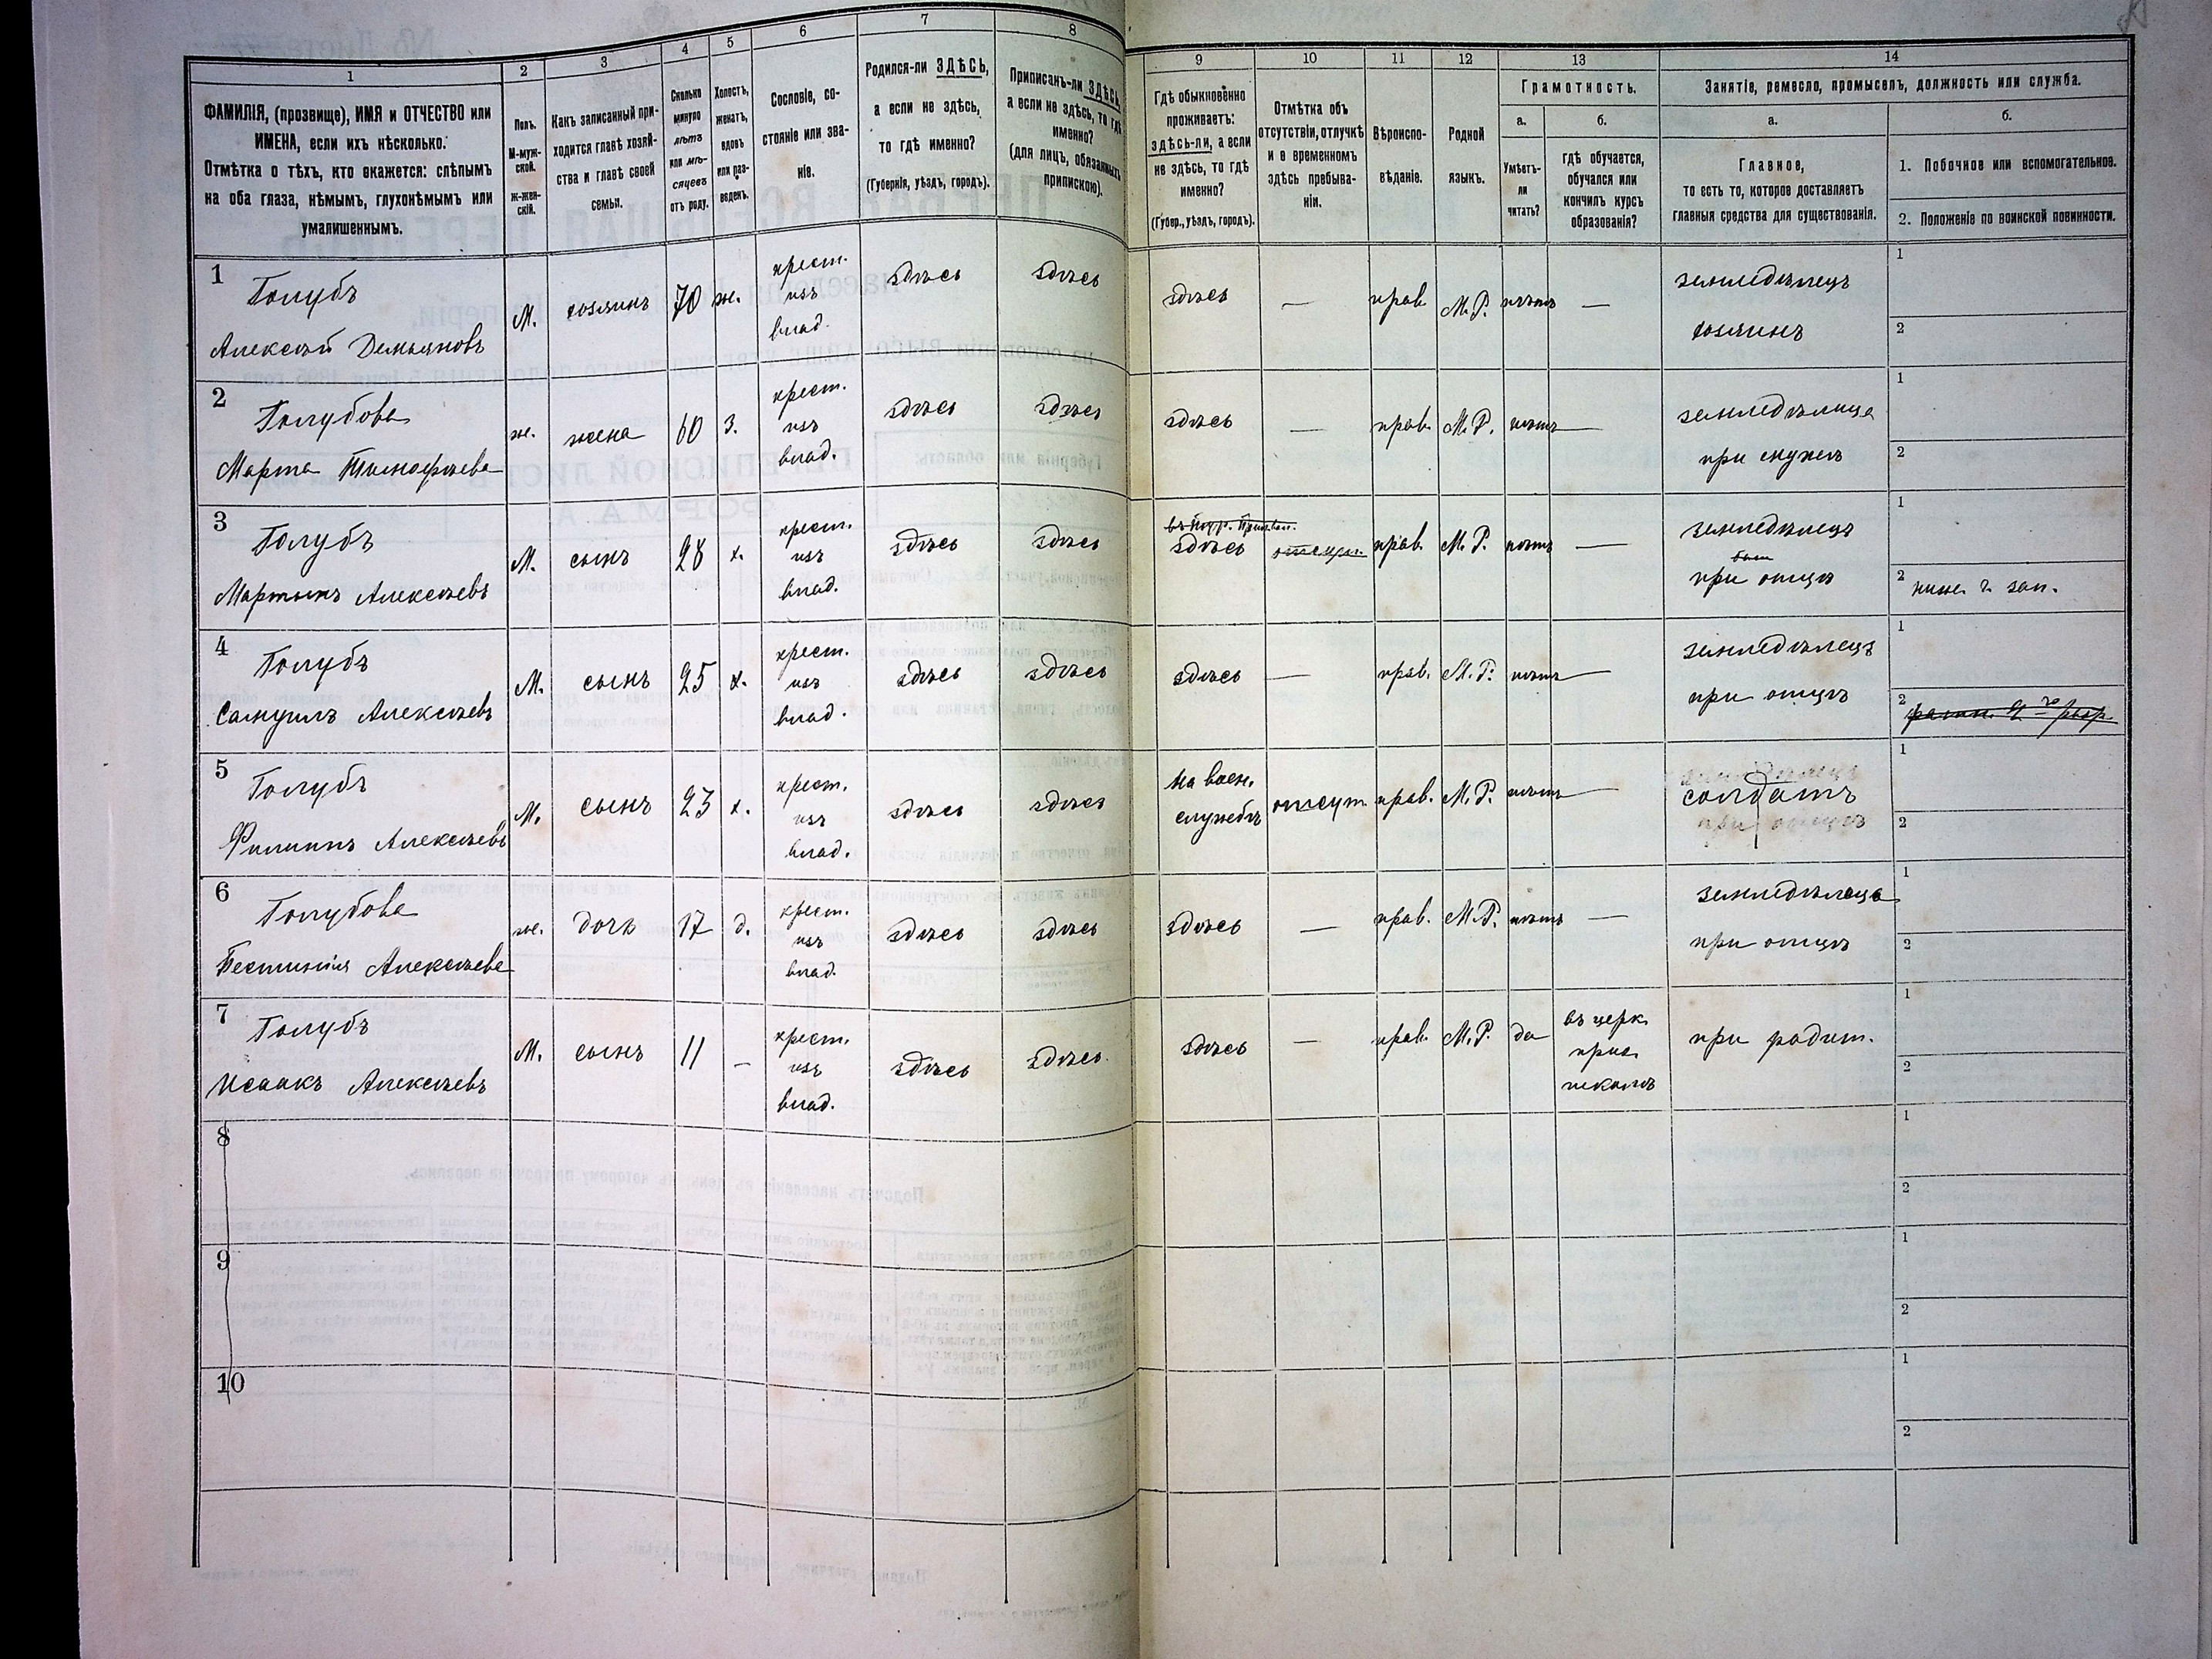 1
2
3
4
5
6
7
8
9
10
11
12
13
14
ФАМИЛІЯ, (прозвище), ИМЯ и ОТЧЕСТВО или
ИМЕНА, если ихъ нѣсколько.
Отмѣтка о тѣхъ, кто окажется: слѣпымъ
на оба глаза, нѣмымъ, глухонѣмымъ или
умалишеннымъ.
Полъ.
М-муж-
ской.
Ж-жен-
скій.
Какъ записанный при-
ходится главѣ хозяй-
ства и главѣ своей
семьи.
Сколько
минуло
лѣтъ
или мѣ-
сяцевъ
отъ роду.
Холостъ,
женатъ,
вдовъ
или раз-
веденъ.
Сословіе, со-
стояніе или зва-
ніе.
Родился-ли ЗДѢСЬ,
а если не здѣсь,
то гдѣ именно?
(Губернія, уѣздъ, городъ).
Приписанъ-ли ЗДѢСЬ,
а если не здѣсь, то гдѣ
именно?
(для лицъ, обязанныхъ
припискою).
Гдѣ обыкновенно
проживаетъ:
здѣсь-ли, а если
не здѣсь, то гдѣ
именно?
(Губер., уѣздъ, городъ).
Отмѣтка объ
отсутствіи, отлучкѣ
и о временномъ
здѣсь пребыва-
ніи.
Вѣроиспо-
вѣданіе.
Родной
языкъ.
Грамотность.
а.
Умѣетъ-
ли
читать?
б.
гдѣ обучается,
обучался или
кончилъ курсъ
образованія?
Занятіе, ремесло, промыселъ, должность или служба.
а.
Главное,
то есть то, которое доставляетъ
главныя средства для существованія.
б.
1. Побочное или вспомогательное.
2. Положеніе по воинской повинности.
1
Голубъ
Алексѣй Демьяновъ
М.
хозяинъ
70
ж.
крест.
изъ
влад.
здѣсь
здѣсь
здѣсь
—
прав.
М. Р.
нѣтъ
—
земледѣлецъ
хозяинъ
1
2
2
Голубова
Марта Тимофѣева
ж.
жена
60
з.
крест.
изъ
влад.
здѣсь
здѣсь
здѣсь
—
прав.
М. Р.
нѣтъ
—
земледѣлица
при мужѣ
1
2
3
Голубъ
Мартынъ Алексѣевъ
М.
сынъ
28
х.
крест.
изъ
влад.
здѣсь
здѣсь
здѣсь
отсут.
прав.
М. Р.
нѣтъ
—
земледѣлецъ
при отцѣ
1
2 ниж. ч. зап.
4
Голубъ
Самуилъ Алексѣевъ
М.
сынъ
25
х.
крест.
изъ
влад.
здѣсь
здѣсь
здѣсь
—
прав.
М. Р.
нѣтъ
—
земледѣлецъ
при отцѣ
1
2
5
Голубъ
Филиппъ Алексѣевъ
М.
сынъ
23
х.
крест.
изъ
влад.
здѣсь
здѣсь
на воен.
службѣ
отсут.
прав.
М. Р.
нѣтъ
—
солдатъ
при отцѣ
1
2
6
Голубова
Устинія Алексѣева
ж.
дочь
17
д.
крест.
изъ
влад.
здѣсь
здѣсь
здѣсь
—
прав.
М. Р.
нѣтъ
—
земледѣлица
при отцѣ
1
2
7
Голубъ
Исаакъ Алексѣевъ
М.
сынъ
11
—
крест.
изъ
влад.
здѣсь
здѣсь
здѣсь
—
прав.
М. Р.
да
въ церк.
прих.
школѣ
при родит.
1
2
8
1
2
9
1
2
10
1
2